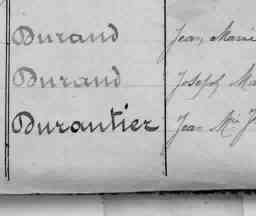 Durand Jean Marie
Durand Joseph Ma
Durantier Jean Mie J